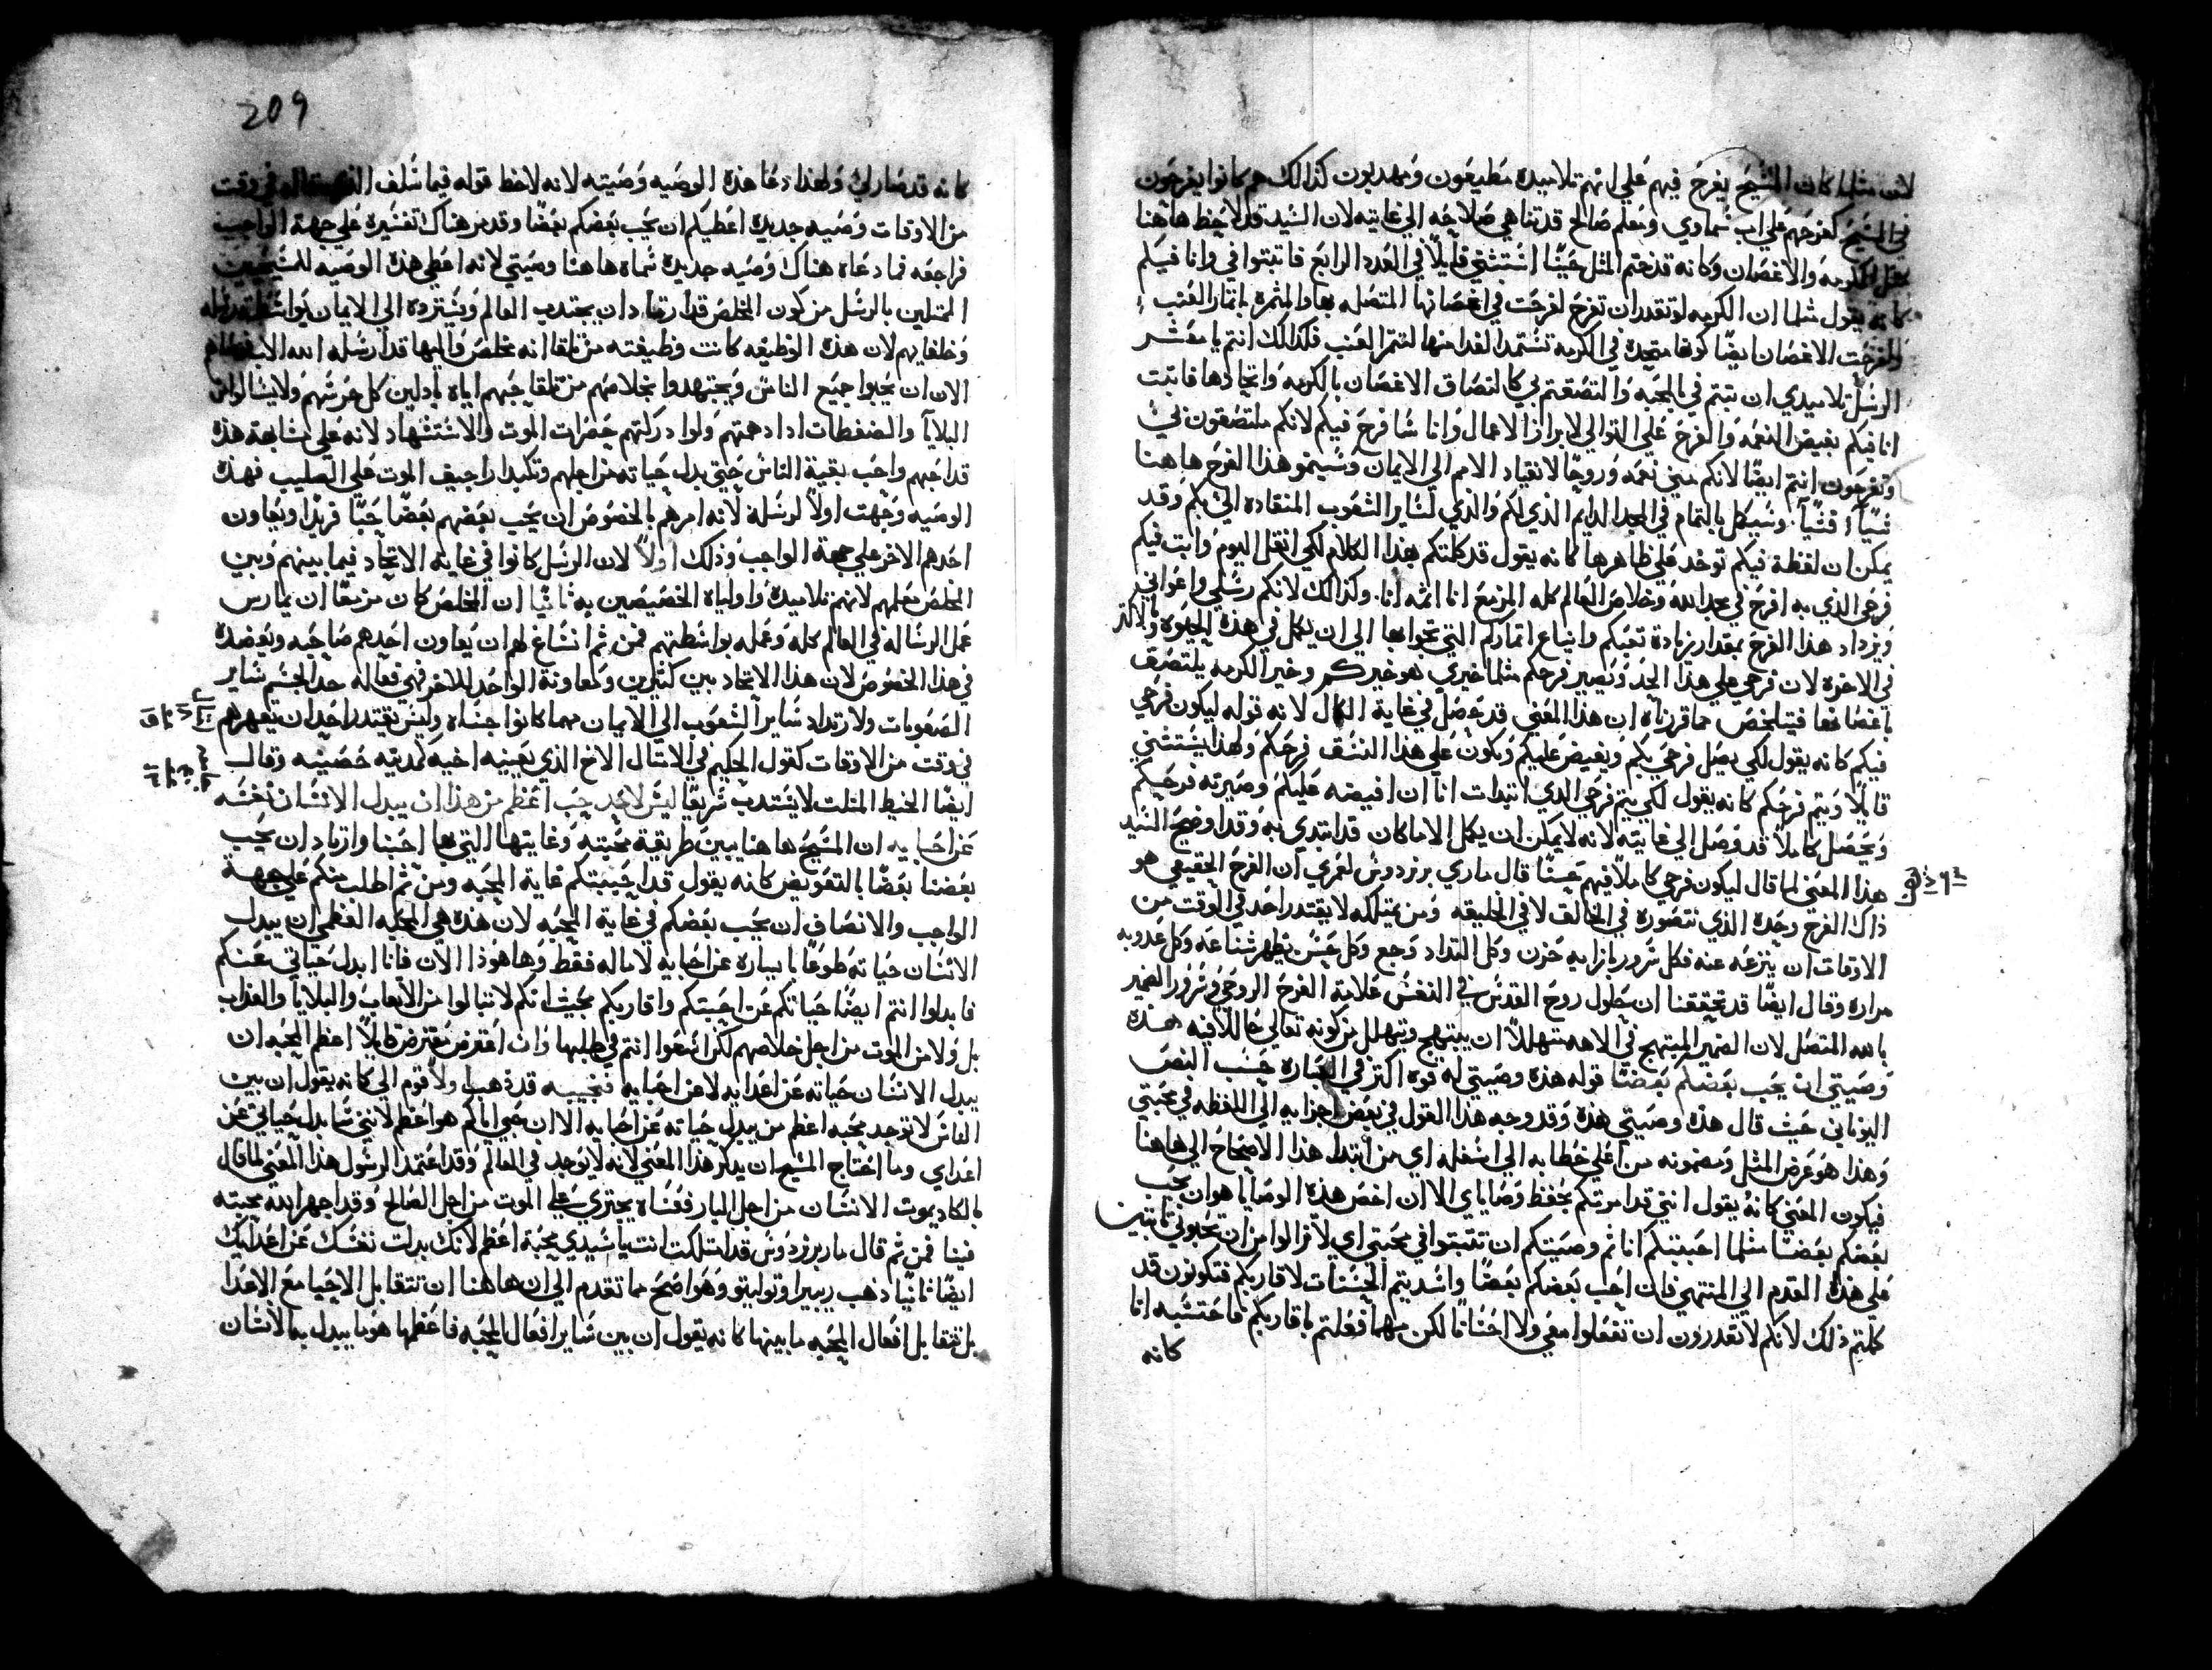 لان مثلما كان المسيح يفرح فيهم علي انهم تلاميده مطيعون ومهدبون كذالك هم كانوا يفرحون
في المسيح كفرحهم علي اب سماوي ومعلم صالح قد تناهي صلاحه الي غايته لان السيد قد لاحظ هاهنا
مثل الكرمه والاغصان وكانه قد ختم المثل عينًا استثني قايلًا في العدد الرابع فاثبتوا في وانا فيكم
كانه يقول مثلما ان الكرمه لو تقدر ان تفرح لفرحت في اغصانها المتصله بها والمثمره باثمار العنب
ولفرحت الاغصان ايضًا كونها متحده في الكرمه تستمد الغدا منها لتثمر العنب فكذالك انتم يا معشر
الرسل تلاميدي ان ثبتم في المحبه والتصقتم بي كالتصاق الاغصان بالكرمه واتحادها فاثبت
انا فيكم بفيض النعمه والفرح علي التوالي لابراز الاعمال وانا سافرح فيكم لانكم ملتصقون بي
وتفرحون انتم ايضًا لانكم مني نعمه وروحًا لانقياد الامم الي الايمان وسينمو هذا الفرح هاهنا
شيًا فشيًا وسيكمل بالتمام في المجد الدايم الذي لكم والذي لساير الشعوب المنقاده الي بكم وقد
يمكن ان لفظة فيكم توخد علي ظاهرها كانه يقول قد كلمتكم بهذا الكلام لكي انقل اليوم واثبت فيكم
فرحي الذي به افرح في مجد الله وخلاص العالم كله المزمع انا اتمه انا. وكذالك لانكم رسلي واعواني
ويزداد هذا الفرح بمقدار زيادة تعبكم واتباع اتماركم التي تنحوا بها الي ان يكمل في هذه الحيوه وبالاكثر
في الاخره لان فرحي علي هذا الحد ويصير فرحكم مثلما خيري هو خيركم وخير الكرمه يلتصق
باغصانها فيتلخص مما قرزناه ان هذا المعني قد توصل في غاية الكمال لانه قوله ليكون فرحي
فيكم كانه يقول لكي يصل فرحي بكم ويفيض عليكم ويكون علي هذا النسق فرحكم ولهذا يستثني
قايلًا ويتم فرحكم كانه يقول لكي يتم فرحي الذي ابتدات انا ان افيضه عليكم وصيرته فرحكم
ويحصل كاملًا قد وصل الي غايته لانه لا يمكن ان يكمل الا ما كان قد ابتدي به وقد اوضح السيد
هذا المعني لما قال ليكون فرحي كاملًا فيهم عينًا قال ماري برنردوس لعمري ان الفرح الحقيقي هو
ذاك الفرح وحده الذي نتصوره في الخالق لا في الخليقه ومن يمتلكه لا يقتدر احد في الوقت من
الاوقات ان ينزعه عنه فكل سرور بازايه حزن وكل التداد وجع وكل حسن يظهر شناعه وكل عدوبه
مراره وقال ايضًا قد تحققنا ان حلول روح القدس في النفس علامة الفرح الروحي وسرور الضمير
بالله المتصل لان الضمير المبتهج في الاهه متهللًا ان يبتهج ويتهلل من كونه تعالي حاللًا فيه هذه
وصيتي ان يحب بعضكم بعضًا قوله هذه وصيتي له قوه اكثر في العباره حسب النص
اليوناني حيث قال هذه وصيتي هذه وقد وجه هذا القول في بعض اجزايه الي اللفظه في محبتي
وهذا هو غرض المثل ومضمونه من اعلي خطابه الي اسفله اي من ابتدا هذا الاصحاح الي هاهنا
فيكون المعني كانه يقول انني قد امرتكم بحفظ وصاياي الا ان اخص هذه الوصايا هو ان يحب
بعضكم بعضًا مثلما احببتكم انا ثم وصيتكم ان تثبتوا في محبتي اي لا تزالوا من ان تحبوني ثابتين
علي هذه القدم الي المنتهي فان احب بعضكم بعضًا واسديتم الحسنات لاقاربكم فتكونون قد
كملتم ذلك لانكم لا تقدرون ان تفعلوا معي ولا احسانًا لكن مهما فعلتم باقاربكم فاحتسبه انا
كانه
209
كانه قد صار لي ولهذا دعا هذه الوصيه وصيته لانه لاحظ قوله فيما سلف في وقت
من الاوقات وصيه جديده اعطيكم ان يحب بعضكم بعضًا وقد مر هناك تفسيره علي جهة الواجب
فراجعه فما دعاه هناك وصيه جديده سماه هاهنا وصيتي لانه اعطي هذه الوصيه للمسيحيين
الممثلين بالرسل من كون المخلص قد ارتقا دان يجتدب العالم ويسترده الي الايمان بواسطة رسله
وخلفايهم لان هذه الوظيفه كانت وظيفته من تلقا انه مخلص واليها قد ارسله الله الاب
الان ان يحبوا جميع الناس ويجتهدوا بخلاصهم من تلقا حبهم اياه بادلين كل حرسهم ولا يبالوا من
البلايا والضغطات ادا دهمتهم ولو ادركتهم حضرات الموت والاستشهاد لانه علي مشابهة هذه
قد احبهم واحب بقية الناس حتي بدل حياته من اجلهم وتكبد اراجيف الموت علي الصليب فهذه
الوصيه وجهت اولًا لرسله لانه امرهم بالخصوص ان يحب بعضهم بعضًا حبًا فريدًا ويعاون
احدهم الاخر علي جهة الواجب وذلك اولًا لان الرسل كانوا في غاية الاتحاد فيما بينهم وبين
المخلص معلمهم لانهم تلاميده واولياه الخصيصين به ثانيًا ان المخلص كان مزمعًا ان يمارس
عمل الرساله في العالم كله وعمله بواسطتهم فمن ثم انساغ لهم ان يعاون احدهم صاحبه ويعضده
في هذا الخصوص لان هذا الاتحاد بين كثيرين ولمعاونة الواحد للاخر فهي فعاله حدًا لحسم ساير
الصعوبات ولارتداد ساير الشعوب الي الايمان مهما كانوا جساه وليس يقتدر احد ان يقهرهم
في وقت من الاوقات كقول الحكيم في الامثال الاخ الذي يعينه اخيه كمدينه حصينه وقال
ايضًا الخيط المثلت لا يستدب سريعًا ليس لاحد حب اعظم من هذا ان يبدل الانسان نفسه
عن احبايه ان المسيح هاهنا يبين طريقة محبته وغايتها التي بها احبنا واراد ان يحب
بعضنا بعضًا بالتعويض كانه يقول قد احببتكم غاية المحبه ومن ثم اطلب منكم علي جهة
الواجب والانصاف ان يحب بعضكم في غاية المحبه لان هذه هي المحبه العظمي ان يبدل
الانسان حياته طوعًا باياره عن احبايه لا ماله فقط وها هوذا الان فانا ابدل حياتي عنكم
فابدلوا انتم ايضًا حياتكم عن احبتكم واقاربكم بحيث انكم لا تبالوا من الاتعاب والبلايا والعذاب
بل ولا من الموت من اجل خلاصهم لكن اسعوا انتم في طلبها وان اعترض معترض قايلًا اعظم المحبه ان
يبدل الانسان حياته عن اعدايه لا عن احبايه فنجيبه قد ذهب اولًا قوم الي كانه يقول ان بين
الناس لا توجد محبه اعظم من يبدل حياته عن احبايه الا ان حبي اياكم هو اعظم لانني سابدل حياتي عن
اعداي وما احتاج المسيح ان يذكر هذا المعني لانه لا يوجد في العالم وقد اعتمد الرسول هذا المعني لما قال
بالكاد يموت الانسان من اجل البار فعساه يجتري علي الموت من اجل الصالح وقد اجهر الله محبته
فينا فمن ثم قال مار برنردوس قد امتلكت انت يا سيدي محبة اعظم لانك بدلت نفسك عن اعدايك
ايضًا ثانيًا ذهب ريبيرا وتوليتو وهو اصح مما تقدم الي ان هاهنا ان تتقابل الاحبا مع الاعدا
بل تتقابل افعال المحبه ما بينها كانه يقول ان بين ساير افعال المحبه فاعظمها هو ما يبدل به الانسان